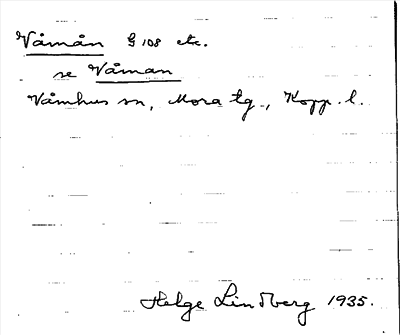 Våmån § 108 etc.
se Våman
Våmhus sn, Mora tg., Kopp. l.
Helge Lindberg 1935.